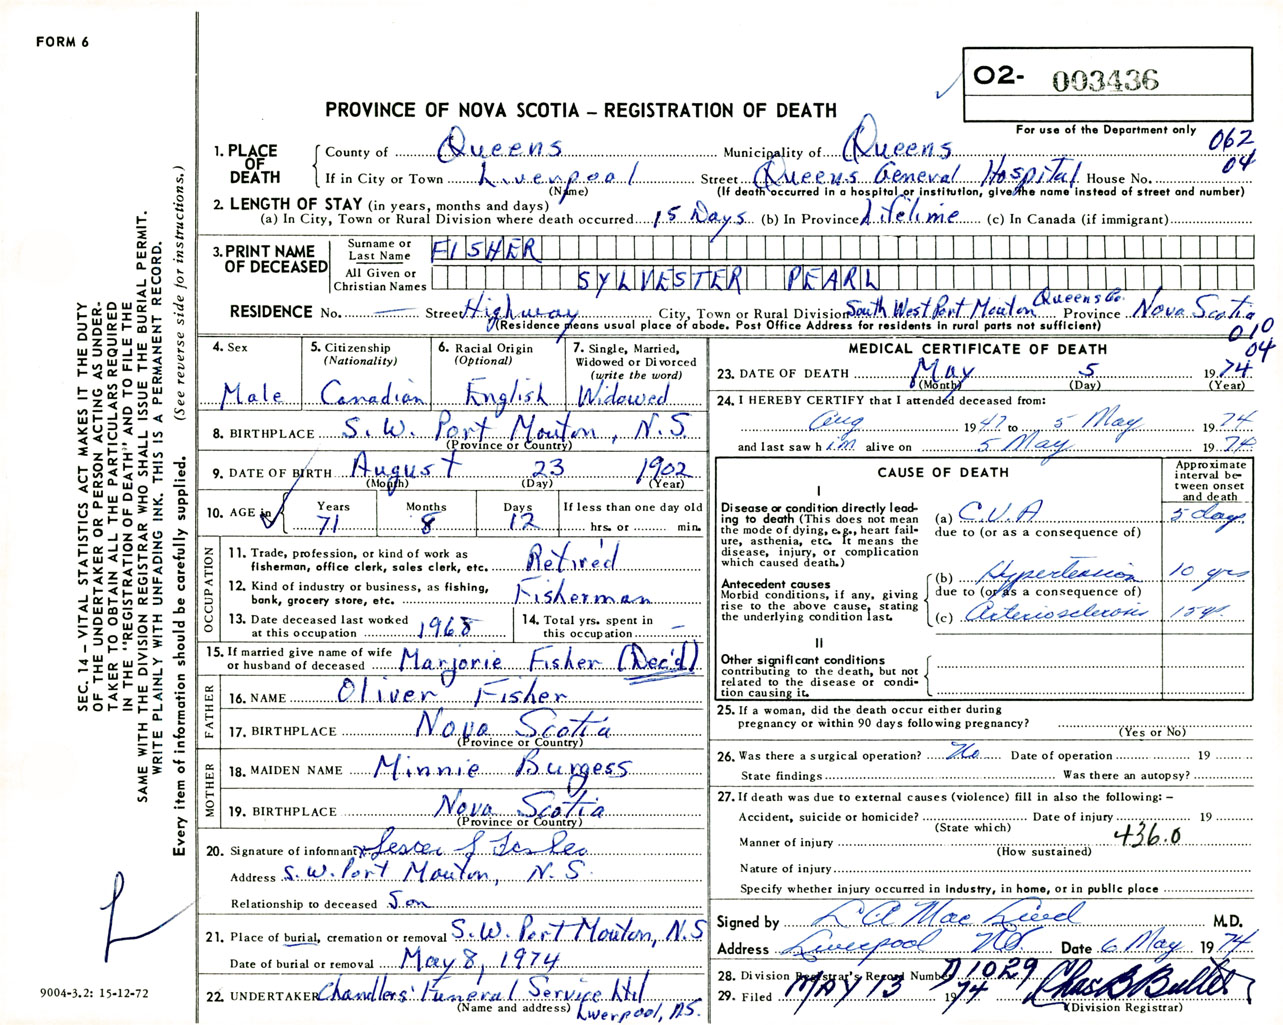 FORM 6
O2- 003436
PROVINCE OF NOVA SCOTIA – REGISTRATION OF DEATH
For use of the Department only
062
04
1. PLACE OF DEATH
County of Queens Municipality of Queens
If in City or Town Liverpool Street Queens General Hospital House No.
(Name) (If death occurred in a hospital or institution, give the name instead of street and number)
2. LENGTH OF STAY (in years, months and days)
(a) In City, Town or Rural Division where death occurred 15 Days (b) In Province Lifetime (c) In Canada (if immigrant)
3. PRINT NAME OF DECEASED
Surname or Last Name FISHER
All Given or Christian Names SYLVESTER PEARL
RESIDENCE No. — Street Highway City, Town or Rural Division South West Port Mouton Queens Co. Province Nova Scotia
(Residence means usual place of abode. Post Office Address for residents in rural parts not sufficient)
010
04
4. Sex Male
5. Citizenship (Nationality) Canadian
6. Racial Origin (Optional) English
7. Single, Married, Widowed or Divorced (write the word) Widowed
8. BIRTHPLACE S.W. Port Mouton, N.S
(Province or Country)
9. DATE OF BIRTH August 23 1902
(Month) (Day) (Year)
10. AGE in Years 71 Months 8 Days 12 If less than one day old hrs. or min.
OCCUPATION
11. Trade, profession, or kind of work as fisherman, office clerk, sales clerk, etc. Retired
12. Kind of industry or business, as fishing, bank, grocery store, etc. Fisherman
13. Date deceased last worked at this occupation 1968
14. Total yrs. spent in this occupation –
15. If married give name of wife or husband of deceased Marjorie Fisher (Dec'd)
FATHER
16. NAME Oliver Fisher
17. BIRTHPLACE Nova Scotia
(Province or Country)
MOTHER
18. MAIDEN NAME Minnie Burgess
19. BIRTHPLACE Nova Scotia
(Province or Country)
20. Signature of informant Lester
Address S.W. Port Mouton, N.S.
Relationship to deceased Son
21. Place of burial, cremation or removal S.W. Port Mouton, N.S
Date of burial or removal May 8, 1974
22. UNDERTAKER Chandlers' Funeral Service Ltd
(Name and address) Liverpool, N.S.
MEDICAL CERTIFICATE OF DEATH
23. DATE OF DEATH May 5 1974
(Month) (Day) (Year)
24. I HEREBY CERTIFY that I attended deceased from:
Aug 1947 to 5 May 1974
and last saw h im alive on 5 May 1974
CAUSE OF DEATH
Approximate interval between onset and death
I
Disease or condition directly leading to death (This does not mean the mode of dying, e.g., heart failure, asthenia, etc. It means the disease, injury, or complication which caused death.)
(a) C.V.A 5 days
due to (or as a consequence of)
Antecedent causes
Morbid conditions, if any, giving rise to the above cause, stating the underlying condition last.
(b) Hypertension 10 yrs
due to (or as a consequence of)
(c) Arteriosclerosis 15 yr
II
Other significant conditions contributing to the death, but not related to the disease or condition causing it.
25. If a woman, did the death occur either during pregnancy or within 90 days following pregnancy?
(Yes or No)
26. Was there a surgical operation? No Date of operation 19
State findings Was there an autopsy?
27. If death was due to external causes (violence) fill in also the following: –
Accident, suicide or homicide? Date of injury 19
(State which)
Manner of injury 436.0
(How sustained)
Nature of injury
Specify whether injury occurred in industry, in home, or in public place
Signed by L A Mac Leod M.D.
Address Liverpool NS Date 6 May 1974
28. Division Registrar's Record Number D1029
29. Filed MAY 13 1974 Chas B Butler
(Division Registrar)
SEC. 14 – VITAL STATISTICS ACT MAKES IT THE DUTY
OF THE UNDERTAKER OR PERSON ACTING AS UNDER-
TAKER TO OBTAIN ALL THE PARTICULARS REQUIRED
IN THE "REGISTRATION OF DEATH" AND TO FILE THE
SAME WITH THE DIVISION REGISTRAR WHO SHALL ISSUE THE BURIAL PERMIT.
WRITE PLAINLY WITH UNFADING INK. THIS IS A PERMANENT RECORD.
Every item of information should be carefully supplied. (See reverse side for instructions.)
9004-3.2: 15-12-72